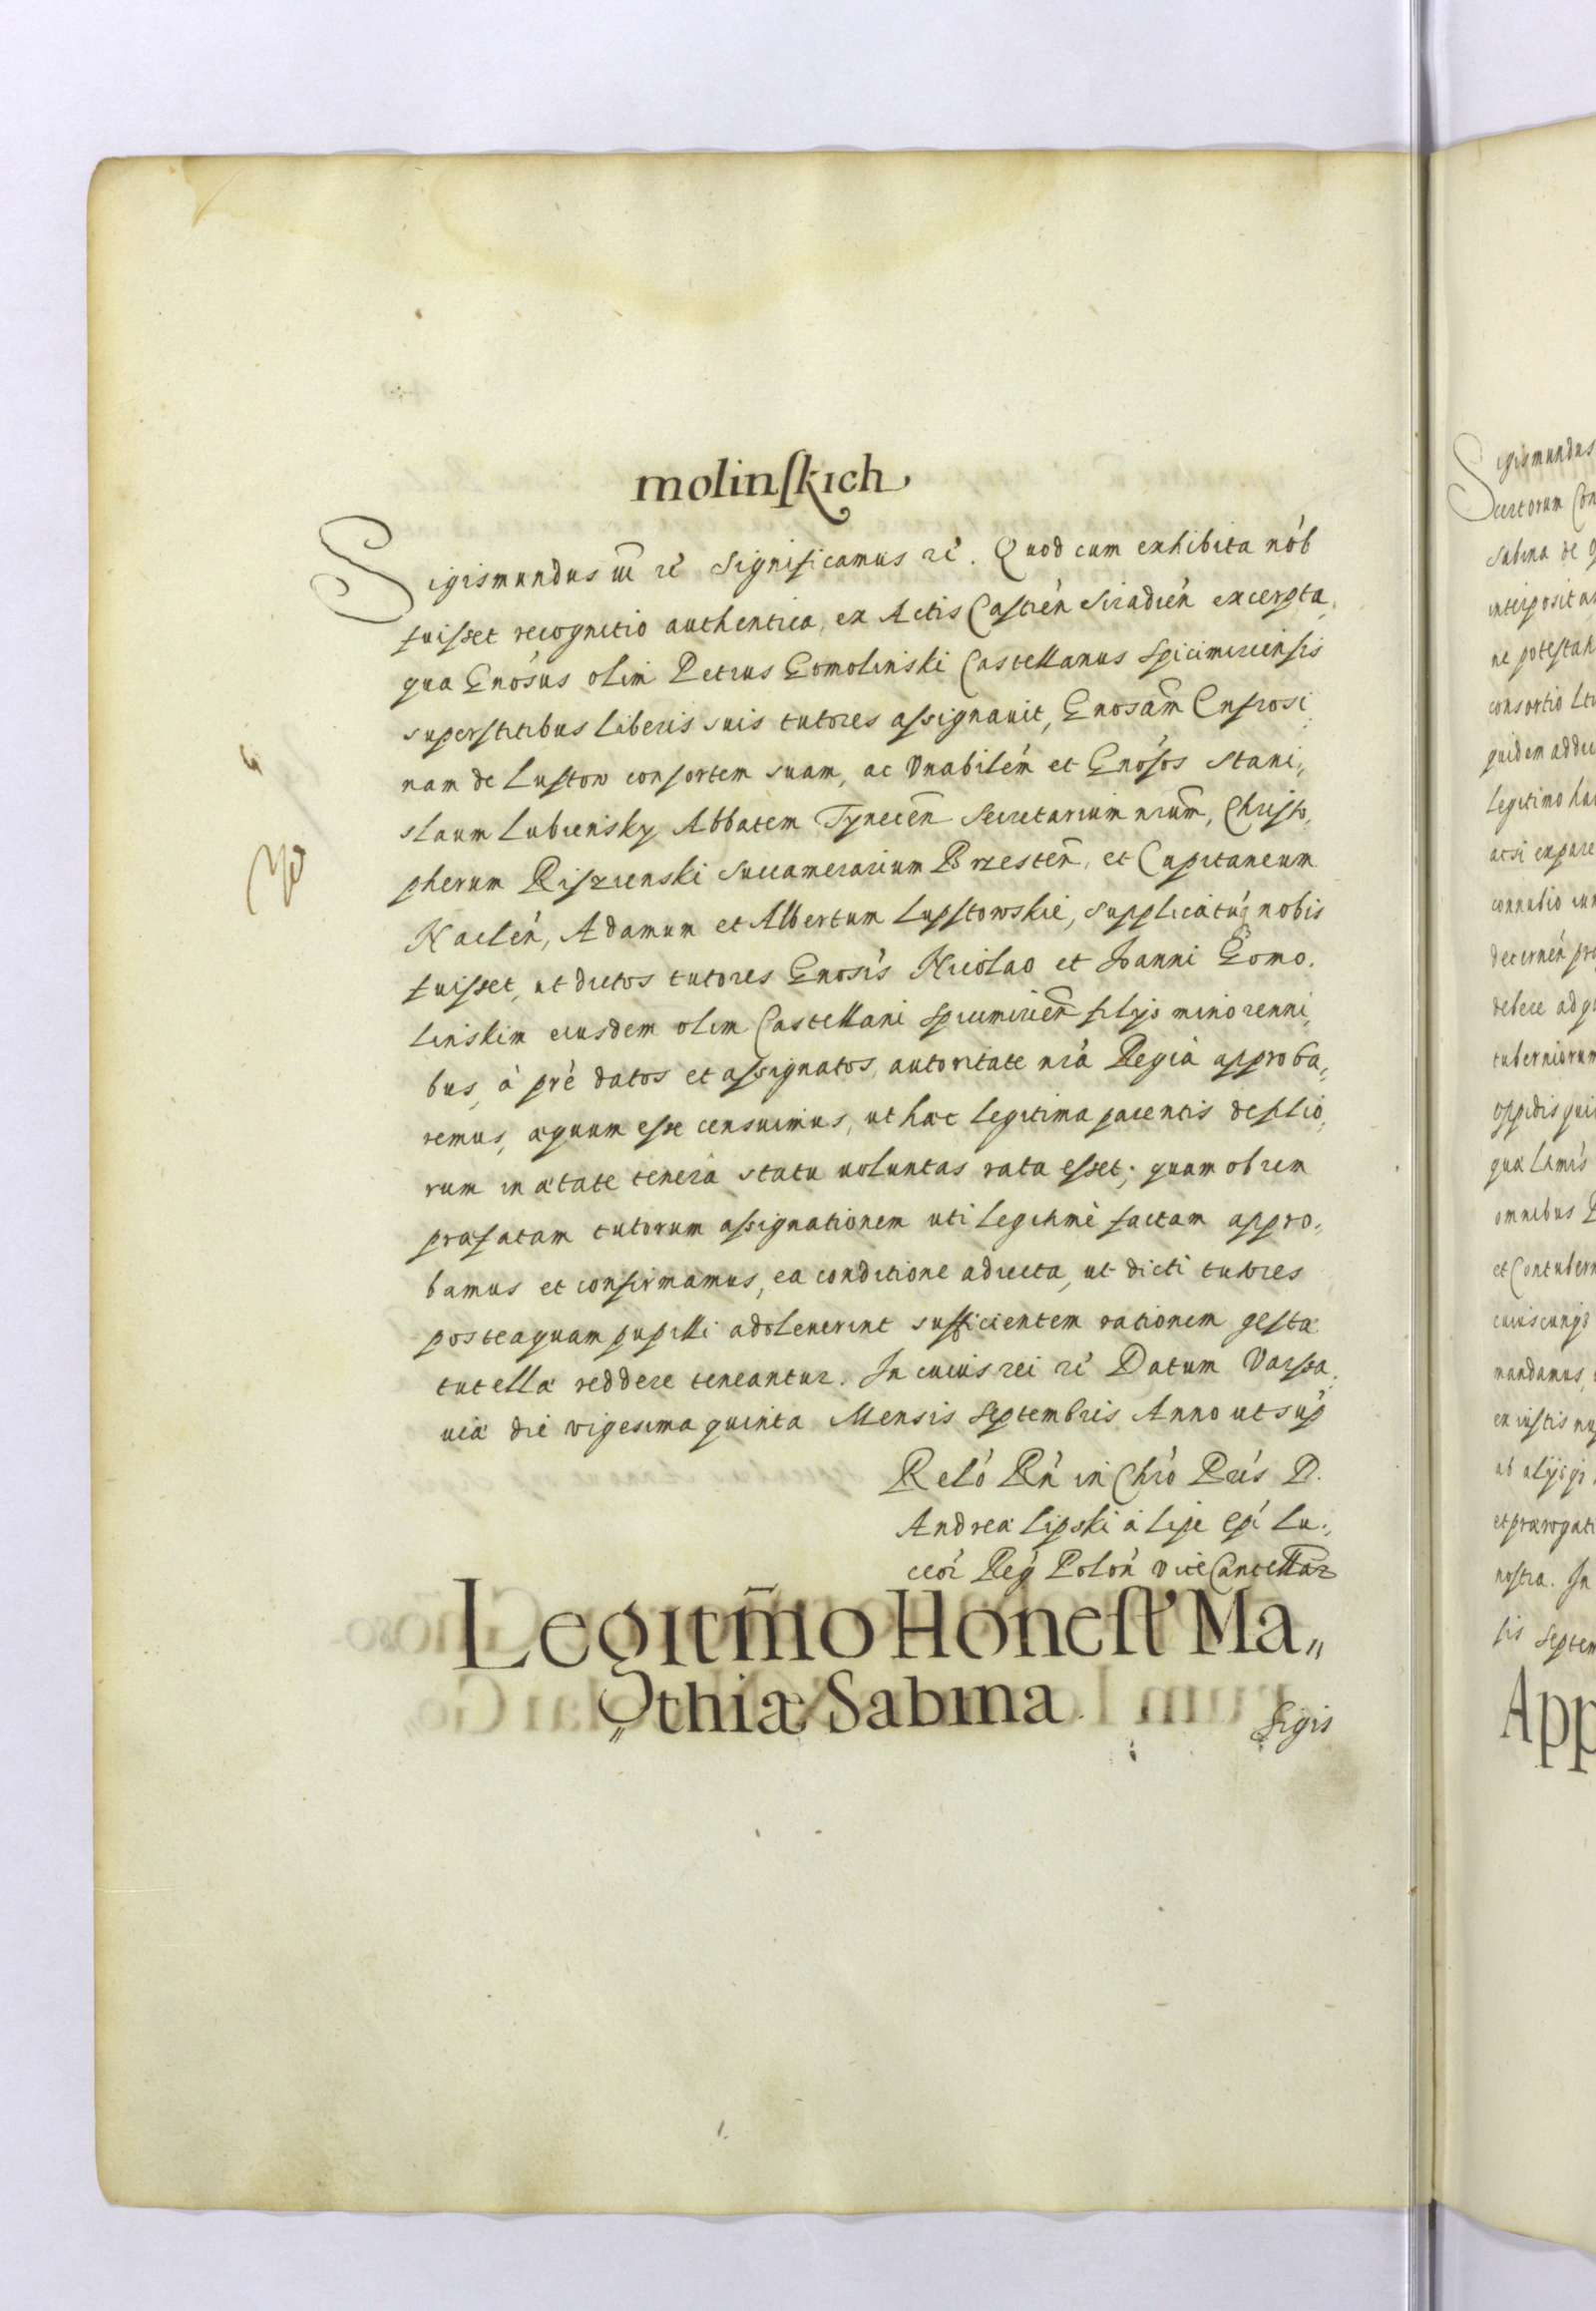 molinſkich
Sigismundus III rc̃ Significamus rc̃. Quod cum exhibita nób
fuisset recognitio authentica, ex Actis Castrén Siradién excerpta,
qua Gnósus olim Petrus Gomolinski Castellanus Spicimiriensis
superstitibus liberis suis tutores assignauit, Gnosam̃ Eufrosi
nam de Lustow consortem suam, ac Vnabilém et Gnósos Stani,,
slaum Lubiensky Abbatem Tynecen̄ Secretarium nrum̃, Christo,
pherum Succamerarium Brzesten̄, et Capitaneum
Naclén, Adamum et Albertum Lupstowskie, supplicatúq nobis
fuisset, ut dictos tutores Gnosís Nicolao et Joanni Gomo.
linskim eiusdem olim Castellani Spicimirien̄ filijs minorenni,
bus, à pré datos et assignatos, autoritate nrá Regia approba,,
remus, æquum esse censuimus, ut hæc legitima parentis de filio,
rum in ætate tenera statu uoluntas rata esset; quam ob rem
præfatam tutorum assignationem uti legitimè factam appro,,
bamus et confirmamus, ea conditione adiecta, ut dicti tutores
posteaquam pupilli adoleuerint sufficientem rationem gestæ
tutellæ reddere teneantur. In cuius rei rc̃ Datum Varsa,
uiæ die vigesima quinta Mensis Septembris Anno ut súp
Reló Rń in Chró Prís D.
Andreæ Lipski à Lipe Epí Lu.,
ceór Rég Polón ViceCancellar
Legitm̃o Honeſt' Ma„
„thiæ Sabina
Sigis
Sigismundus
Sabina de
ne potestat
quidem addu
legitimo
connubio
decernén
debere
oppidis
omnibus
mandamus
nostra. In
sis Septem
App